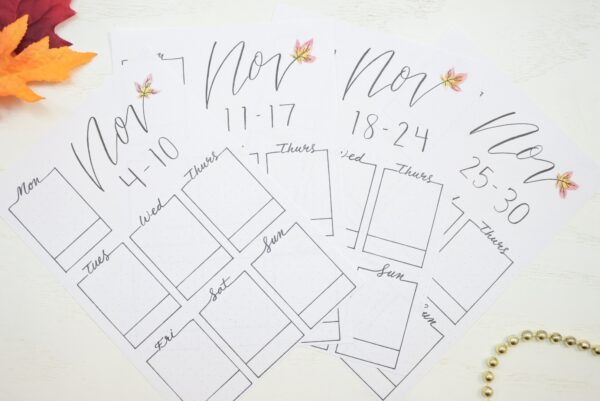 Nov
4-10
Mon
Tues
Wed
Thurs
Fri
Sat
Sun
Nov
11-17
Thurs
Nov
18-24
Wed
Thurs
Sun
Nov
25-30
Thurs
un